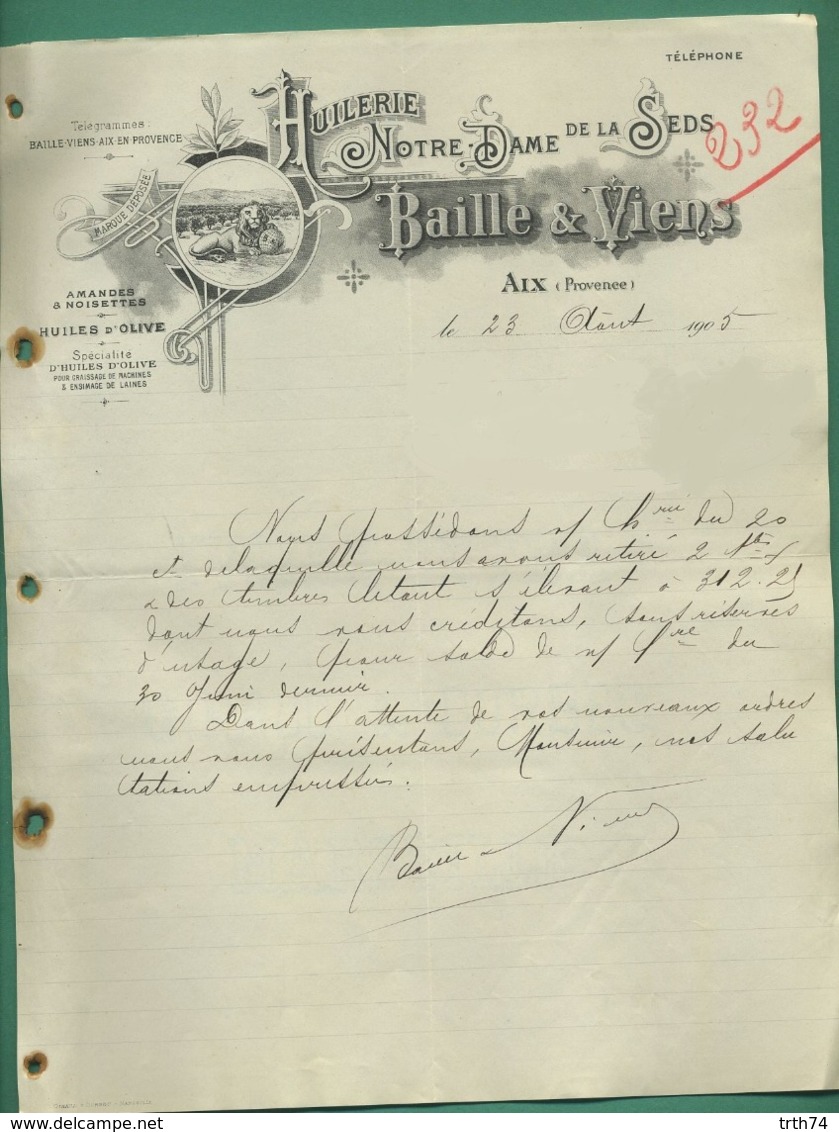 TÉLÉPHONE
232
Télégrammes:
BAILLE-VIENS-AIX-EN-PROVENCE
HUILERIE
NOTRE-DAME DE LA SEDS
MARQUE DÉPOSÉE
Baille & Viens
AIX (Provence)
le 23 Août 1905
AMANDES
& NOISETTES
HUILES D'OLIVE
Spécialité
D'HUILES D'OLIVE
POUR GRAISSAGE DE MACHINES
& ENSIMAGE DE LAINES
Nous possédons v/ du 20
et de laquelle nous avons retiré 2
& des timbres le tout s'élevant à 312.25
dont nous vous créditons, sous réserves
d'usage, pour solde de n/ fre du
30 Juin dernier.
Dans l'attente de vos nouveaux ordres
nous vous présentons, Monsieur, nos salu
tations empressées.
Baille & Viens
trth74